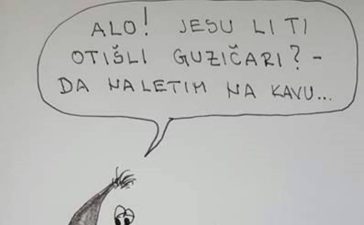 ALO! JESU LI TI
OTIŠLI GUZIČARI? -
DA NALETIM NA KAVU...